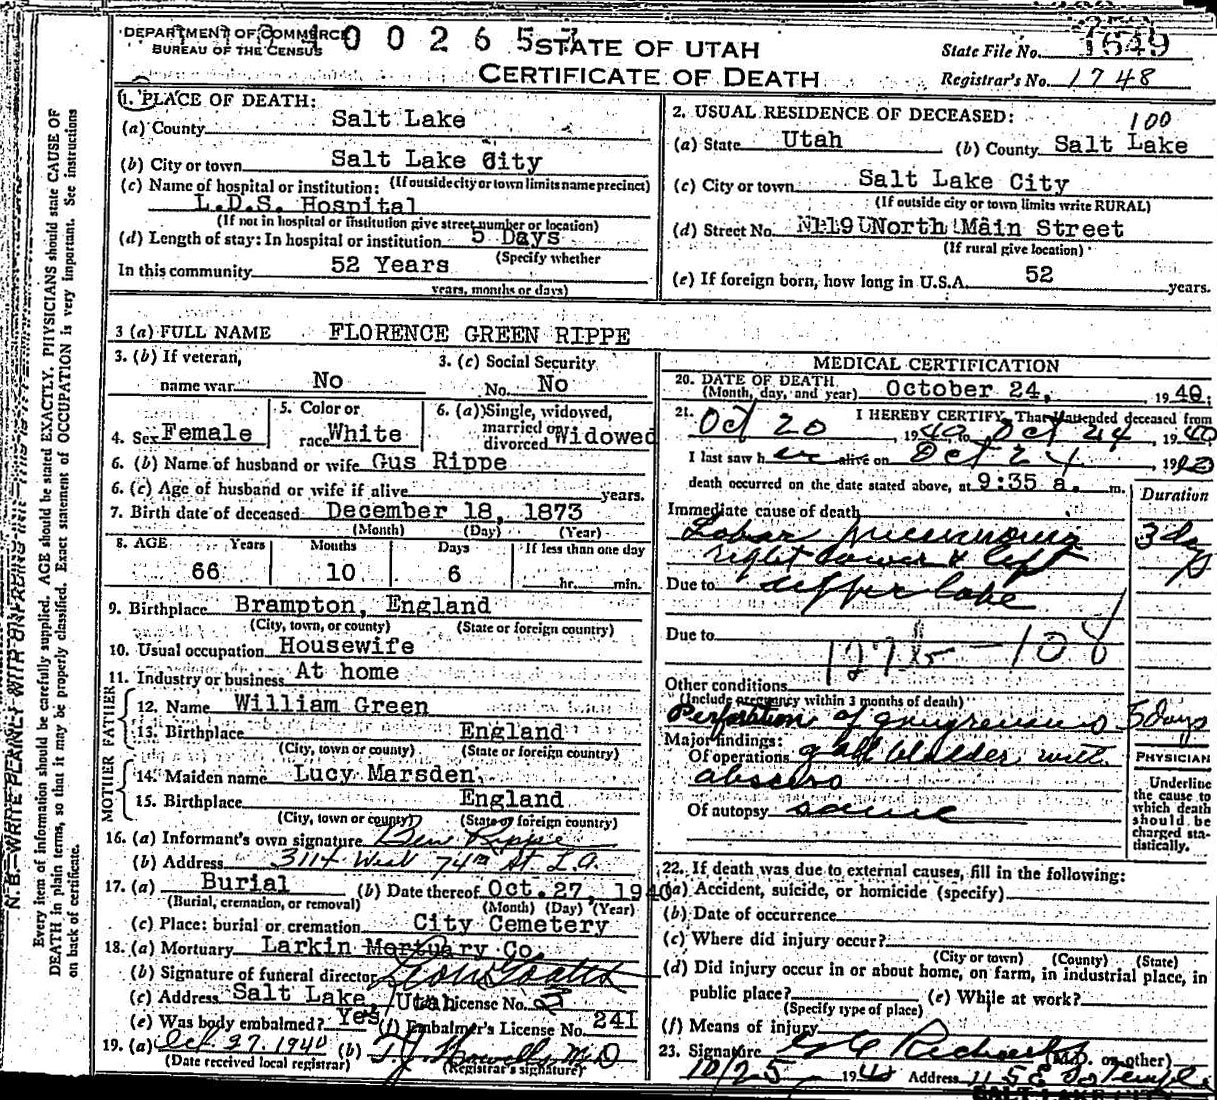 DEPARTMENT OF COMMERCE
BUREAU OF THE CENSUS
0 0 2 6 5
STATE OF UTAH
CERTIFICATE OF DEATH
State File No. 1649
Registrar's No. 1748
1. PLACE OF DEATH:
(a) County Salt Lake
(b) City or town Salt Lake City
(If outside city or town limits name precinct)
(c) Name of hospital or institution:
L.D.S. Hospital
(If not in hospital or institution give street number or location)
(d) Length of stay: In hospital or institution 5 Days
(Specify whether
In this community 52 Years
years, months or days)
2. USUAL RESIDENCE OF DECEASED:
100
(a) State Utah (b) County Salt Lake
(c) City or town Salt Lake City
(If outside city or town limits write RURAL)
(d) Street No. North Main Street
(If rural give location)
(e) If foreign born, how long in U.S.A. 52 years.
3 (a) FULL NAME FLORENCE GREEN RIPPE
3. (b) If veteran,
name war No
3. (c) Social Security
No. No
4. Sex Female
5. Color or
race White
6. (a) Single, widowed,
married or
divorced Widowed
6. (b) Name of husband or wife Gus Rippe
6. (c) Age of husband or wife if alive years.
7. Birth date of deceased December 18, 1873
(Month) (Day) (Year)
8. AGE Years Months Days If less than one day
66 10 6 hr. min.
9. Birthplace Brampton, England
(City, town, or county) (State or foreign country)
10. Usual occupation Housewife
11. Industry or business At home
FATHER
12. Name William Green
13. Birthplace England
(City, town or county) (State or foreign country)
MOTHER
14. Maiden name Lucy Marsden,
15. Birthplace England
(City, town or county) (State or foreign country)
16. (a) Informant's own signature Ben Rippe
(b) Address 3114 West 74th St. L.A.
17. (a) Burial (b) Date thereof Oct. 27, 1940
(Burial, cremation, or removal) (Month) (Day) (Year)
(c) Place: burial or cremation City Cemetery
18. (a) Mortuary Larkin Mortuary Co.
(b) Signature of funeral director
(c) Address Salt Lake, Utah License No.
(e) Was body embalmed? Yes (f) Embalmer's License No. 241
19. (a) Oct. 27. 1940 (b) T. J. Howells M.D
(Date received local registrar) (Registrar's signature)
MEDICAL CERTIFICATION
20. DATE OF DEATH
(Month, day, and year) October 24, 1940.
21. I HEREBY CERTIFY, That I attended deceased from
Oct 20, 1940 to Oct 24, 1940
I last saw her alive on Oct 24 1940
death occurred on the date stated above, at 9:35 a. m.
Duration
Immediate cause of death
Lobar pneumonia 3 days
right lower & left
Due to upper lobe
Due to
127b - 108
Other conditions
(Include pregnancy within 3 months of death)
Perforation of gangrenous 5 days
Major findings:
Of operations gall bladder with
abscess
Of autopsy same
PHYSICIAN
Underline
the cause to
which death
should be
charged sta-
tistically.
22. If death was due to external causes, fill in the following:
(a) Accident, suicide, or homicide (specify)
(b) Date of occurrence
(c) Where did injury occur?
(City or town) (County) (State)
(d) Did injury occur in or about home, on farm, in industrial place, in
public place? (e) While at work?
(Specify type of place)
(f) Means of injury
23. Signature G G Richards (M.D. or other)
10/25 1940 Address 115 E So Temple
SALT LAKE CITY
N. B.—WRITE PLAINLY WITH UNFADING INK
Every item of information should be carefully supplied. AGE should be stated EXACTLY. PHYSICIANS should state CAUSE OF
DEATH in plain terms, so that it may be properly classified. Exact statement of OCCUPATION is very important. See instructions
on back of certificate.